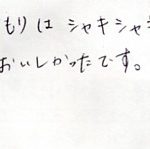 もりは シャキシャキ
おいしかったです。